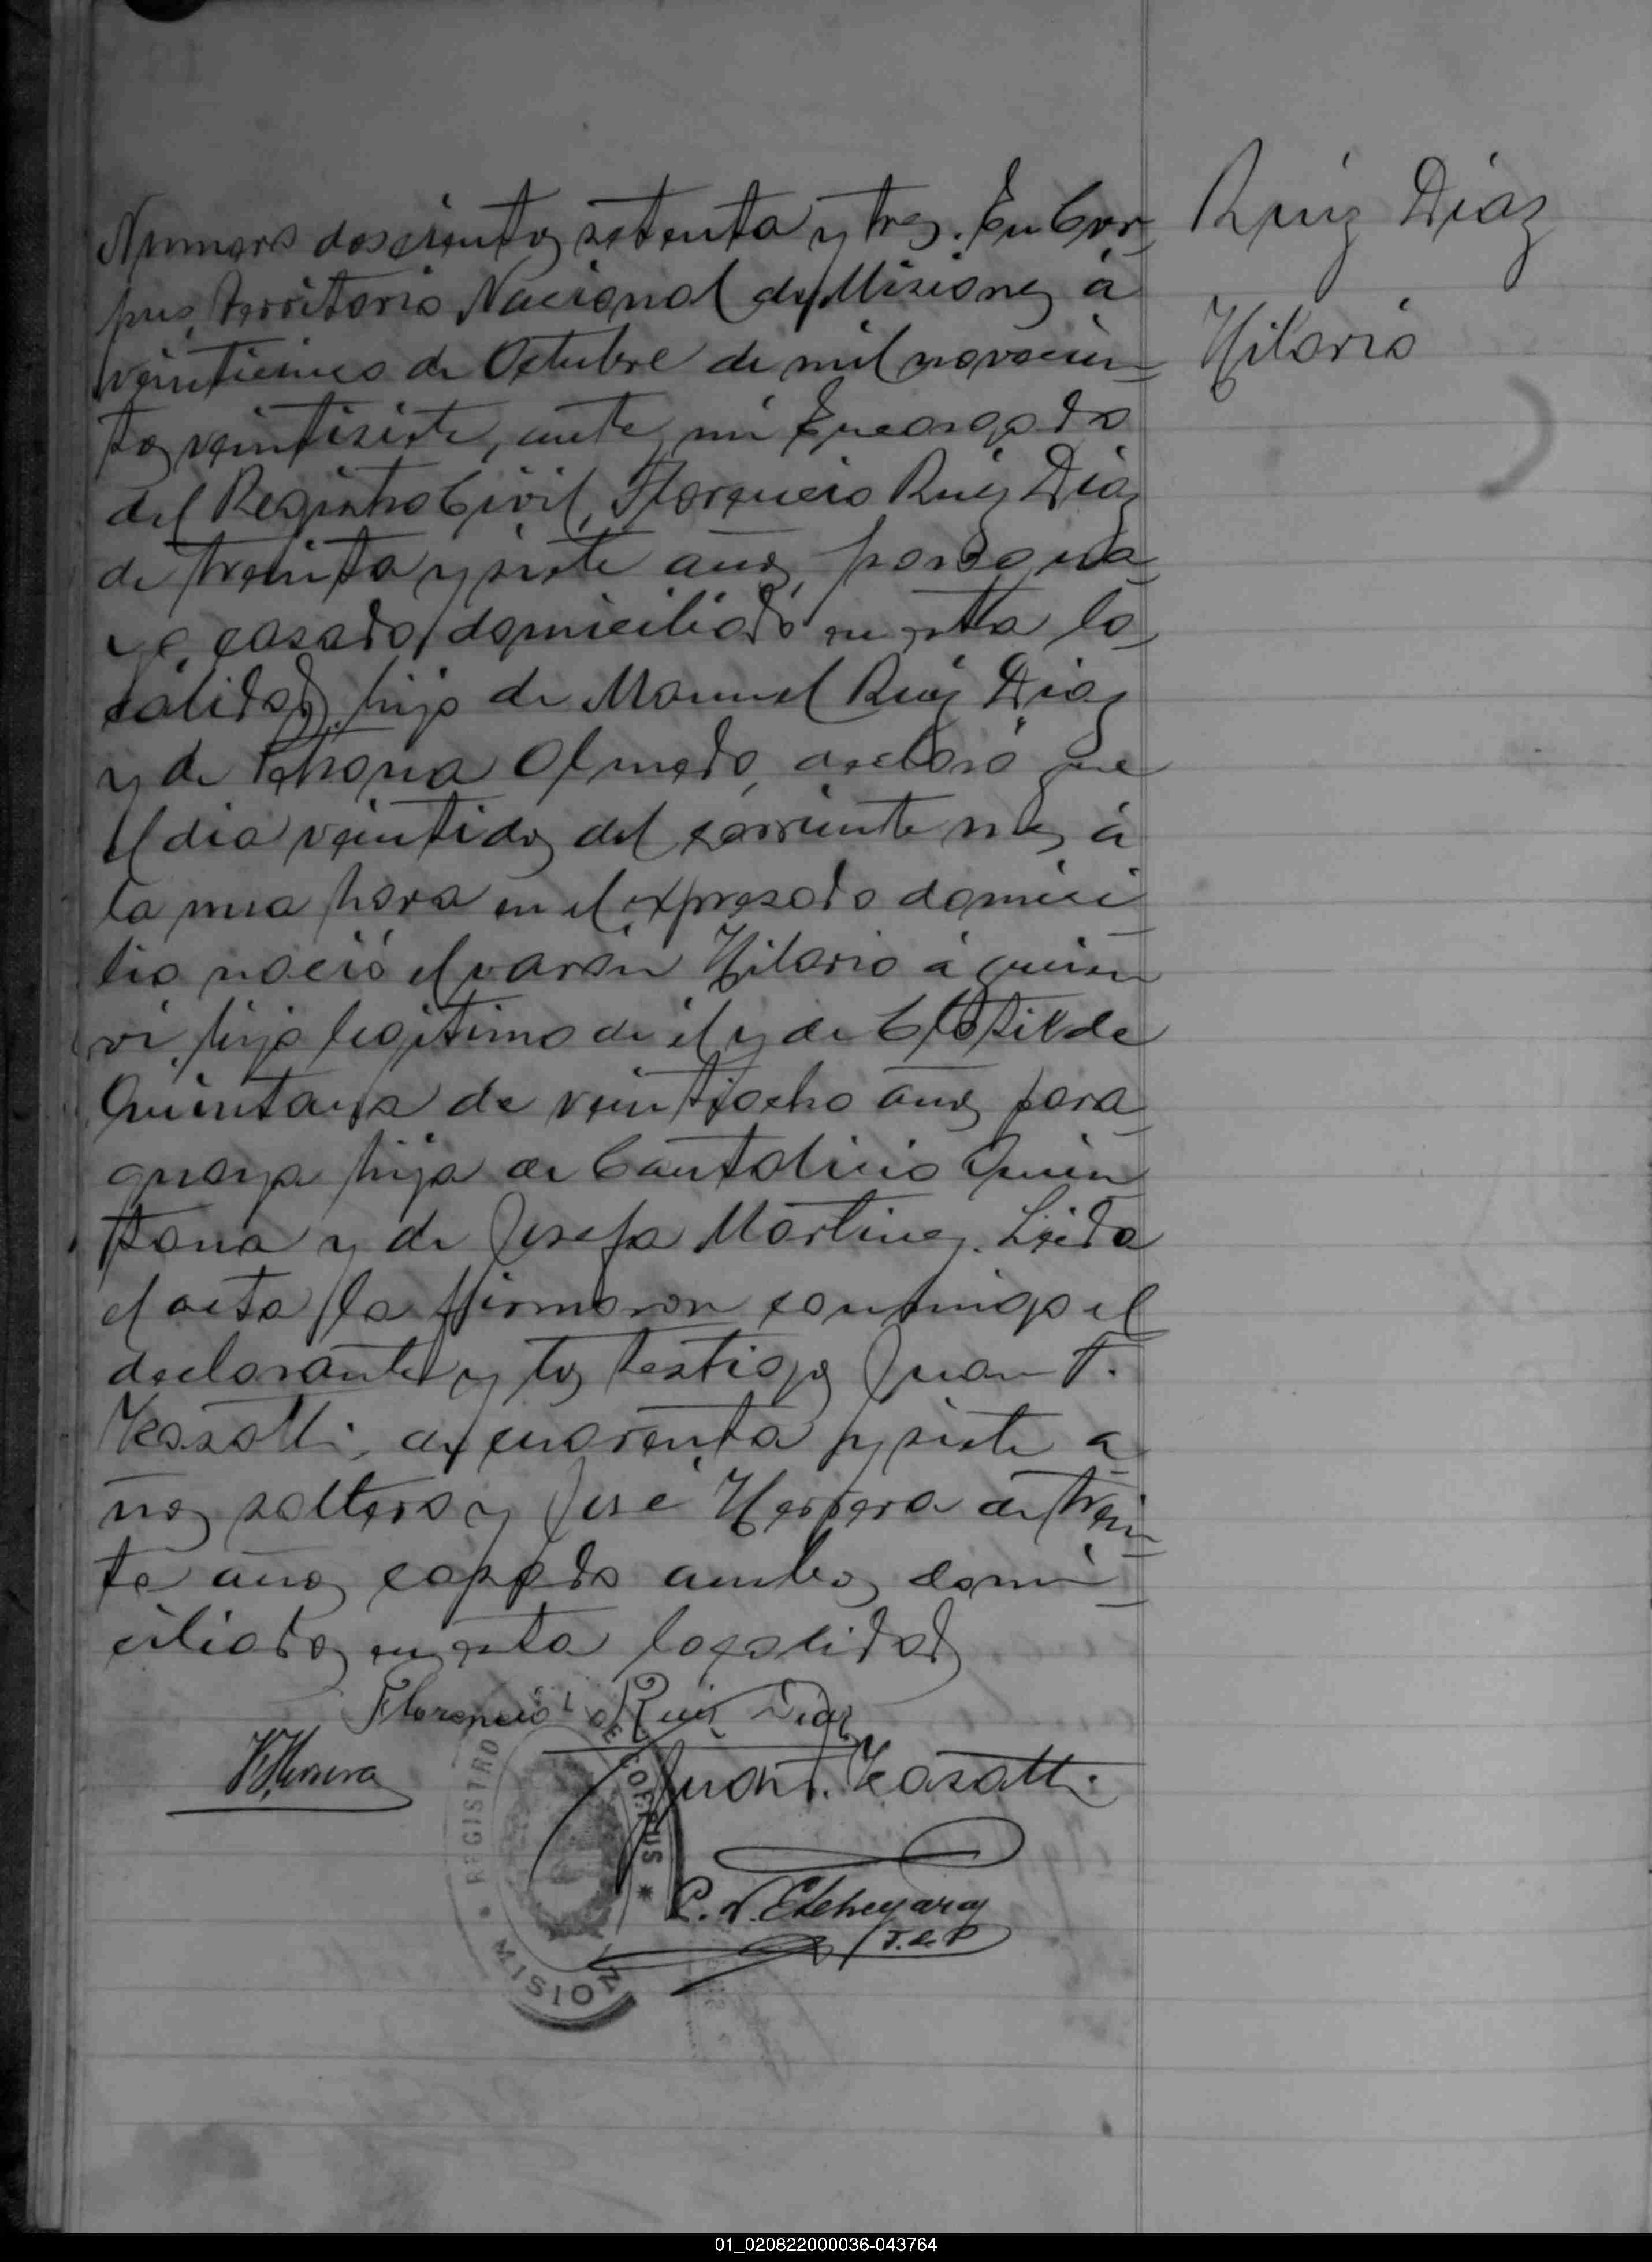 Numero doscientos setenta y tres. En Cor-
pus, Territorio Nacional de Misiones á
veinticinco de Octubre de mil novecien-
tos veintisiete, ante mi Encargado
del Registro Civil, Florencio Ruiz Diaz
de treinta y siete años, paragua-
yo, casado, domiciliado en esta lo-
calidad, hijo de Manuel Ruiz Diaz
y de Olmedo, declaró que
el dia veintidos del corriente mes á
la una hora en el expresado domici-
lio nació el varón Hilario á quien
vi, hijo legitimo de él y de Clotilde
Quintana de veintiocho años para-
guaya hija de Cantalicio Quin-
tana y de Josefa Martinez. Leida
el acta la firmaron conmigo el
declarante y los testigos Juan T.
de cuarenta y siete a-
ños soltero y José Herrera de trein-
ta años casado ambos domi-
ciliados en esta localidad
Florencio Ruiz Diaz
Herrera
Juan T.
C. N. Etchegaray
J. de P
REGISTRO
DE CORPUS *
MISION
Ruiz Diaz
Hilario
01_020822000036-043764